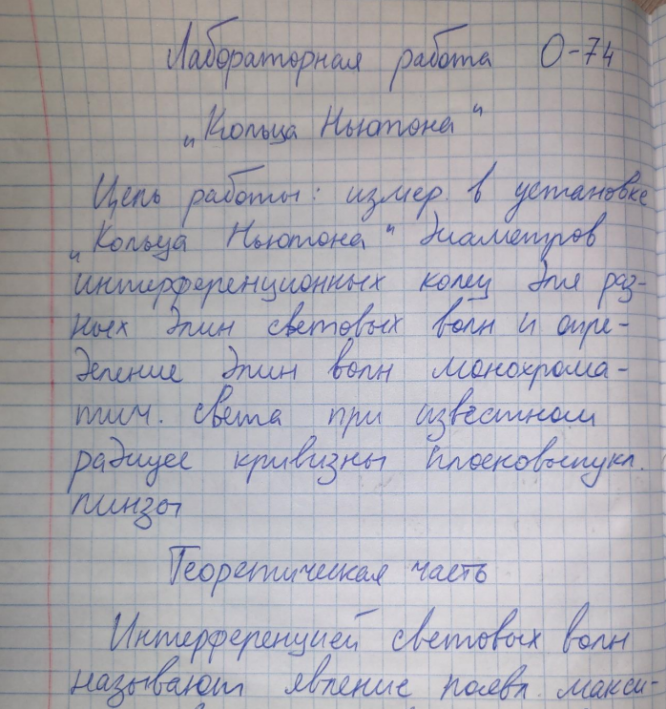 Лабораторная работа О-74
„Кольца Ньютона"
Цель работы: измер. в установке
„Кольца Ньютона" диаметров
интерференционных колец для раз-
ных длин световых волн и опре-
деление длин волн монохрома-
тич. света при известном
радиусе кривизны плосковыпукл.
линзы
Теоретическая часть
Интерференцией световых волн
называют явление появл. макси-